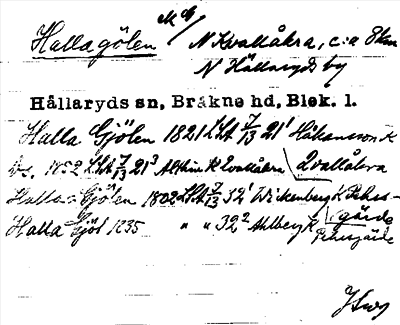 Halla gölen
N Kvallåkra, c:a 8 km
N Hällaryds by
Hällaryds sn, Bräkne hd, Blek. l.
Halla Gjölen 1821 Lht 7/13 21¹ Håkansson K Qvallåkra
Ds. 1852 Lht 7/13 21³ K Qvallåkra
Halla Gjölen 1802 Lht 7/13 32¹ Wickenberg K Pehrsgärde
Halla Gjöl 1835 " " 32² Ahlberg K Pehrsgärde